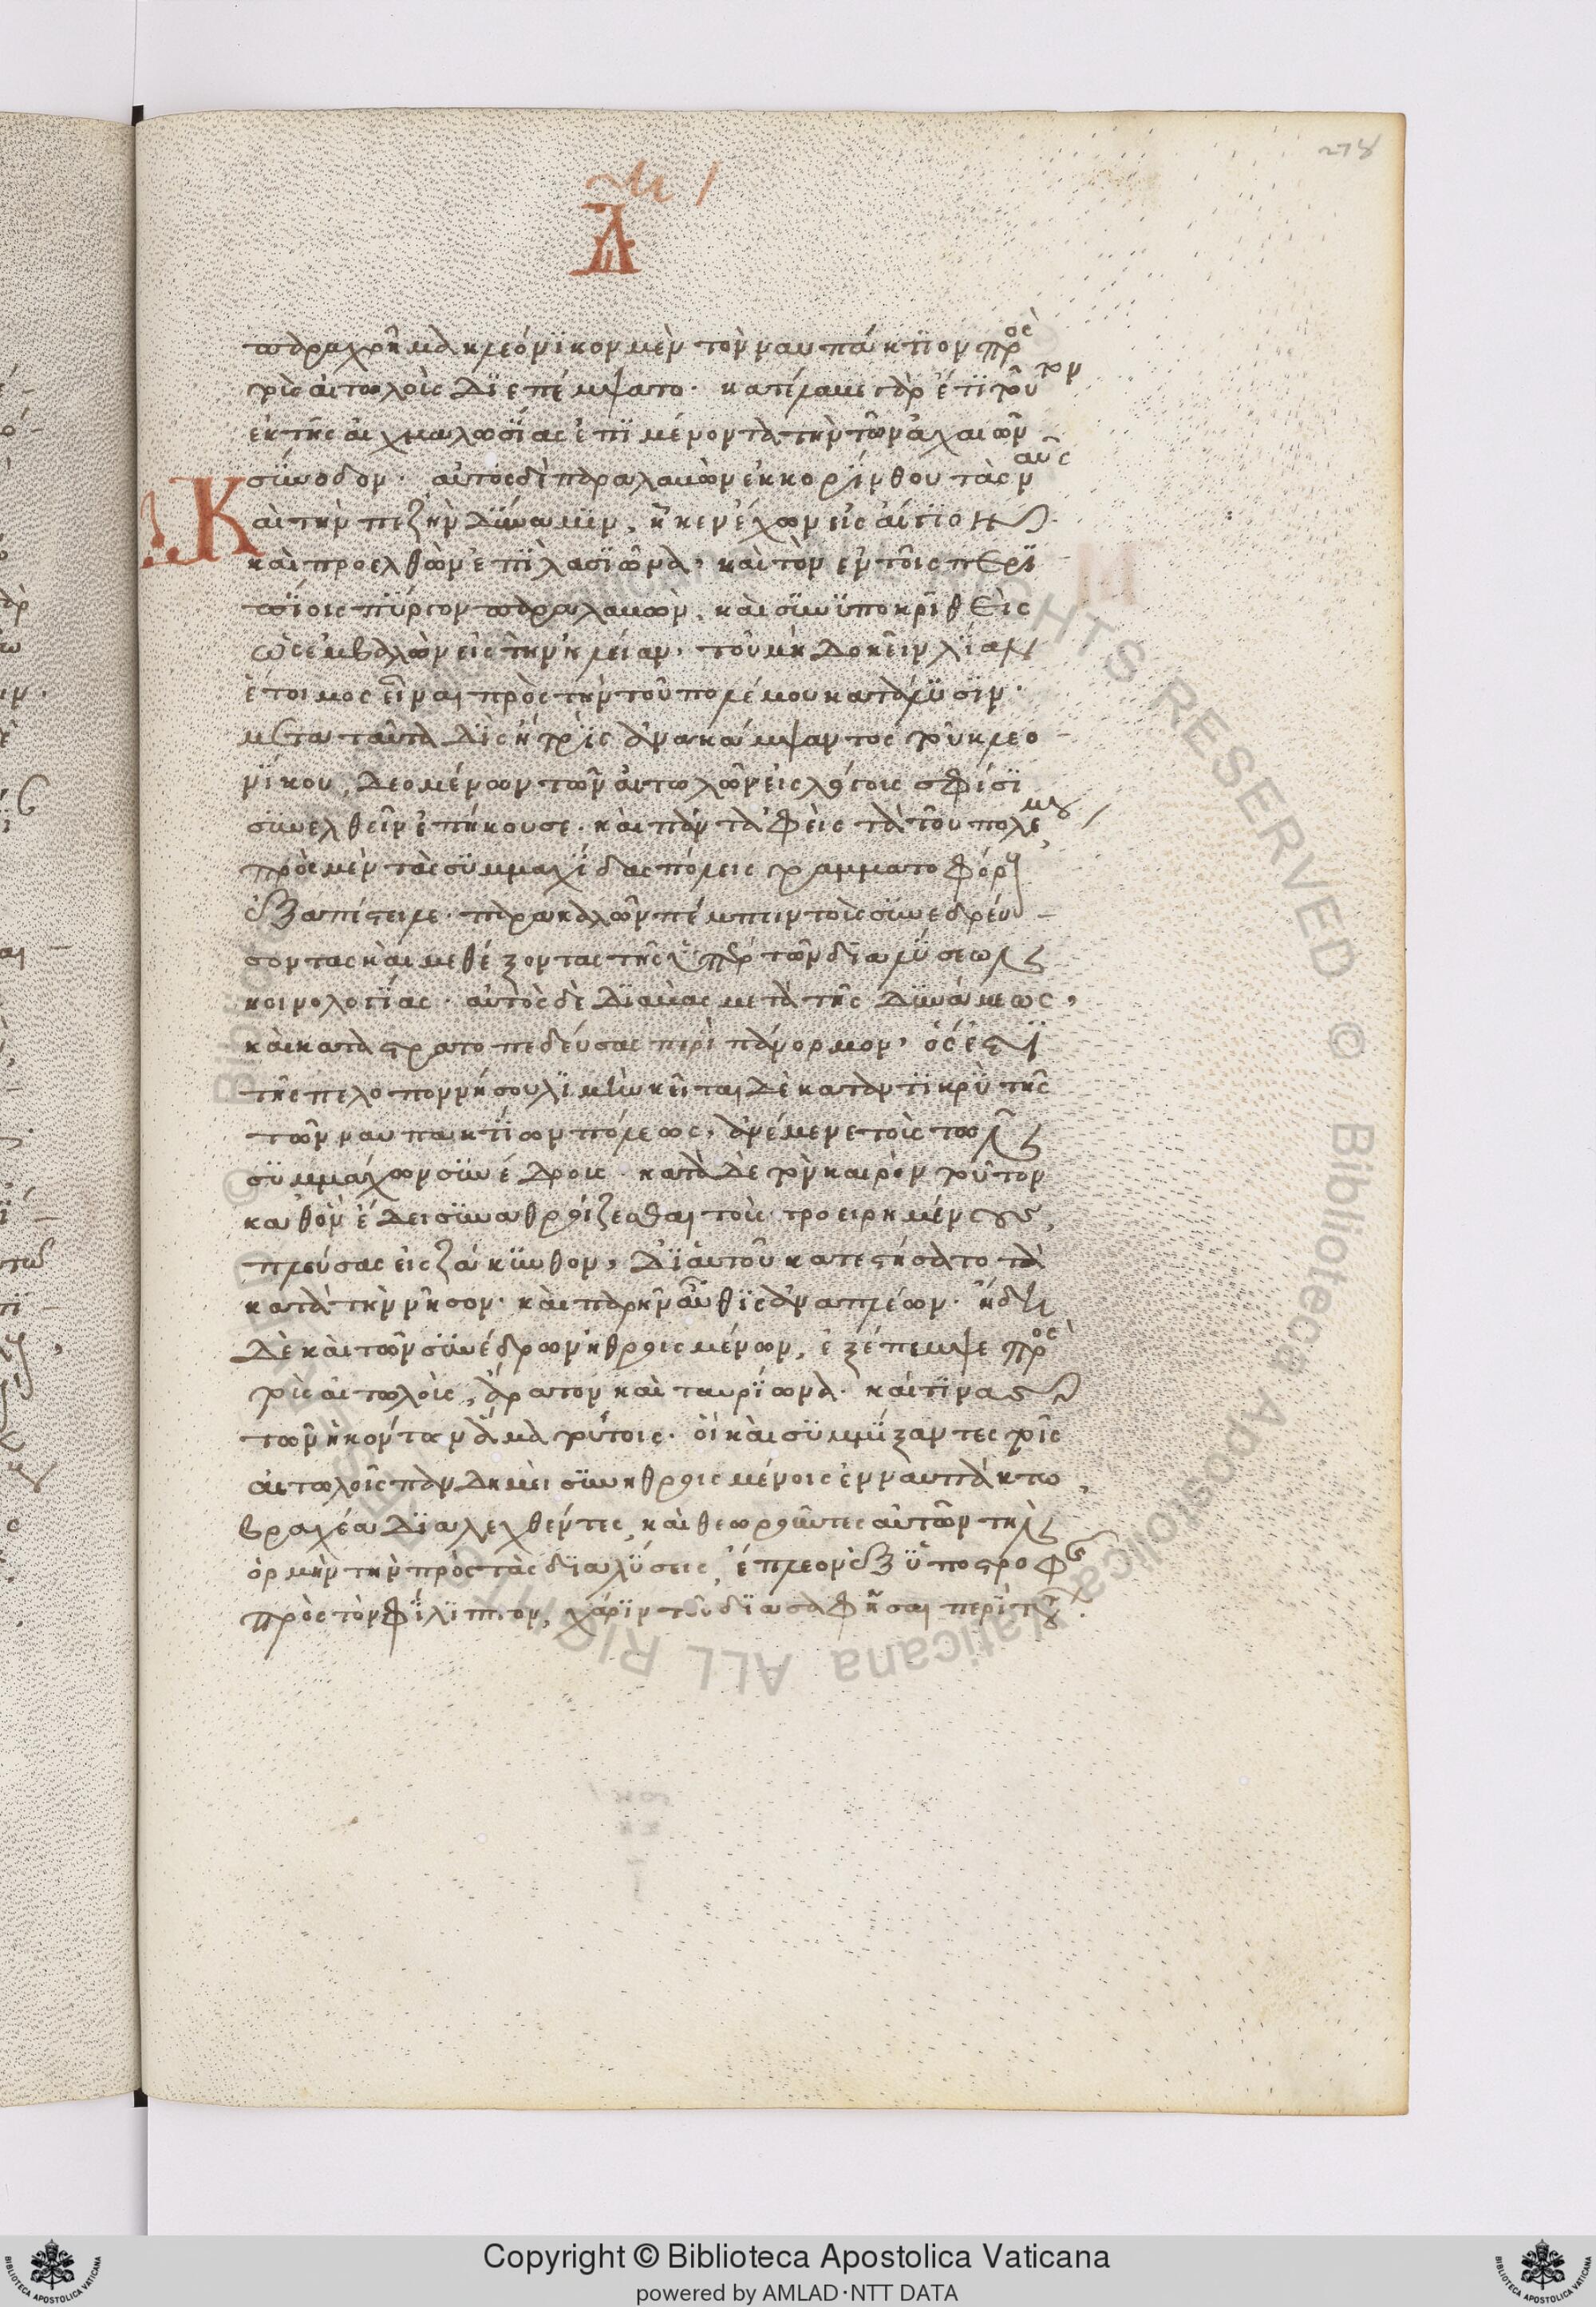 Δ
παραχρῆμα κλεόνικον μὲν τὸν ναυπάκτιον πρὸς
τοὺς αἰτωλοὺς διεπέμψατο· κατέλαβε γὰρ ἔτι τοῦτον
ἐκ τῆς αἰχμαλωσίας ἐπιμένοντα τὴν τῶν ἀχαιῶν
σύνοδον· αὐτὸς δὲ παραλαβὼν ἐκ κορίνθου τὰς ναῦς
Καὶ τὴν πεζὴν δύναμιν, ἧκεν ἔχων εἰς αἴγιον·
καὶ προελθὼν ἐπὶ λασιῶνα, καὶ τὸν ἐν τοῖς περι
πίοις πύργον παραλαβὼν, καὶ συνυποκριθεὶς
ὡς ἐμβαλὼν εἰς τὴν ἠλείαν, τοῦ μὴ δοκεῖν λίαν
ἕτοιμος εἶναι πρὸς τὴν τοῦ πολέμου κατάλυσιν·
μετὰ ταῦτα δὶς ἢ τρὶς ἀνακάμψαντος τοῦ κλεο
νίκου, δεομένων τῶν αἰτωλῶν εἰς λόγους σφίσι
συνελθεῖν ἐπήκουσε· καὶ πάντα ἀφεὶς τὰ τοῦ πολέμου
πρὸς μὲν τὰς συμμαχίδας πόλεις γραμματοφόρους
ἐξαπέστειλε· παρακαλῶν πέμπειν τοὺς συνεδρεύ
σοντας καὶ μεθέξοντας τῆς ὑπὲρ τῶν διαλύσεων
κοινολογίας· αὐτὸς δὲ διαβὰς μετὰ τῆς δυνάμεως,
καὶ καταστρατοπεδεύσας περὶ πάνορμον, ὅς ἐστι
τῆς πελοποννήσου λιμὴν κεῖται δὲ καταντικρὺ τῆς
τῶν ναυπακτίων πόλεως, ἀνέμενε τοὺς τῶν
συμμάχων συνέδρους· κατὰ δὲ τὸν καιρὸν τοῦτον
καθ' ὃν ἔδει συναθροίζεσθαι τοὺς προειρημένους,
πλεύσας εἰς ζάκυνθον, δι' αὑτοῦ κατεστήσατο τὰ
κατὰ τὴν νῆσον· καὶ παρῆν αὖθις ἀναπλέων· ἤδη
δὲ καὶ τῶν συνέδρων ἠθροισμένων, ἐξέπεμψε πρὸς
τοὺς αἰτωλοὺς, ἄρατον καὶ ταυρίωνα· καί τινας
τῶν ἡκόντων ἅμα τούτοις· οἳ καὶ συμμίξαντες τοῖς
αἰτωλοῖς πανδημεὶ συνηθροισμένοις ἐν ναυπάκτῳ,
βραχέα διαλεχθέντες, καὶ θεωροῦντες αὐτῶν τὴν
ὁρμὴν τὴν πρὸς τὰς διαλύσεις, ἔπλεον ἐξ ὑποστροφῆς
πρὸς τὸν φίλιππον, χάριν τοῦ διασαφῆσαι περὶ τούτων·
Copyright © Biblioteca Apostolica Vaticana
powered by AMLAD·NTT DATA